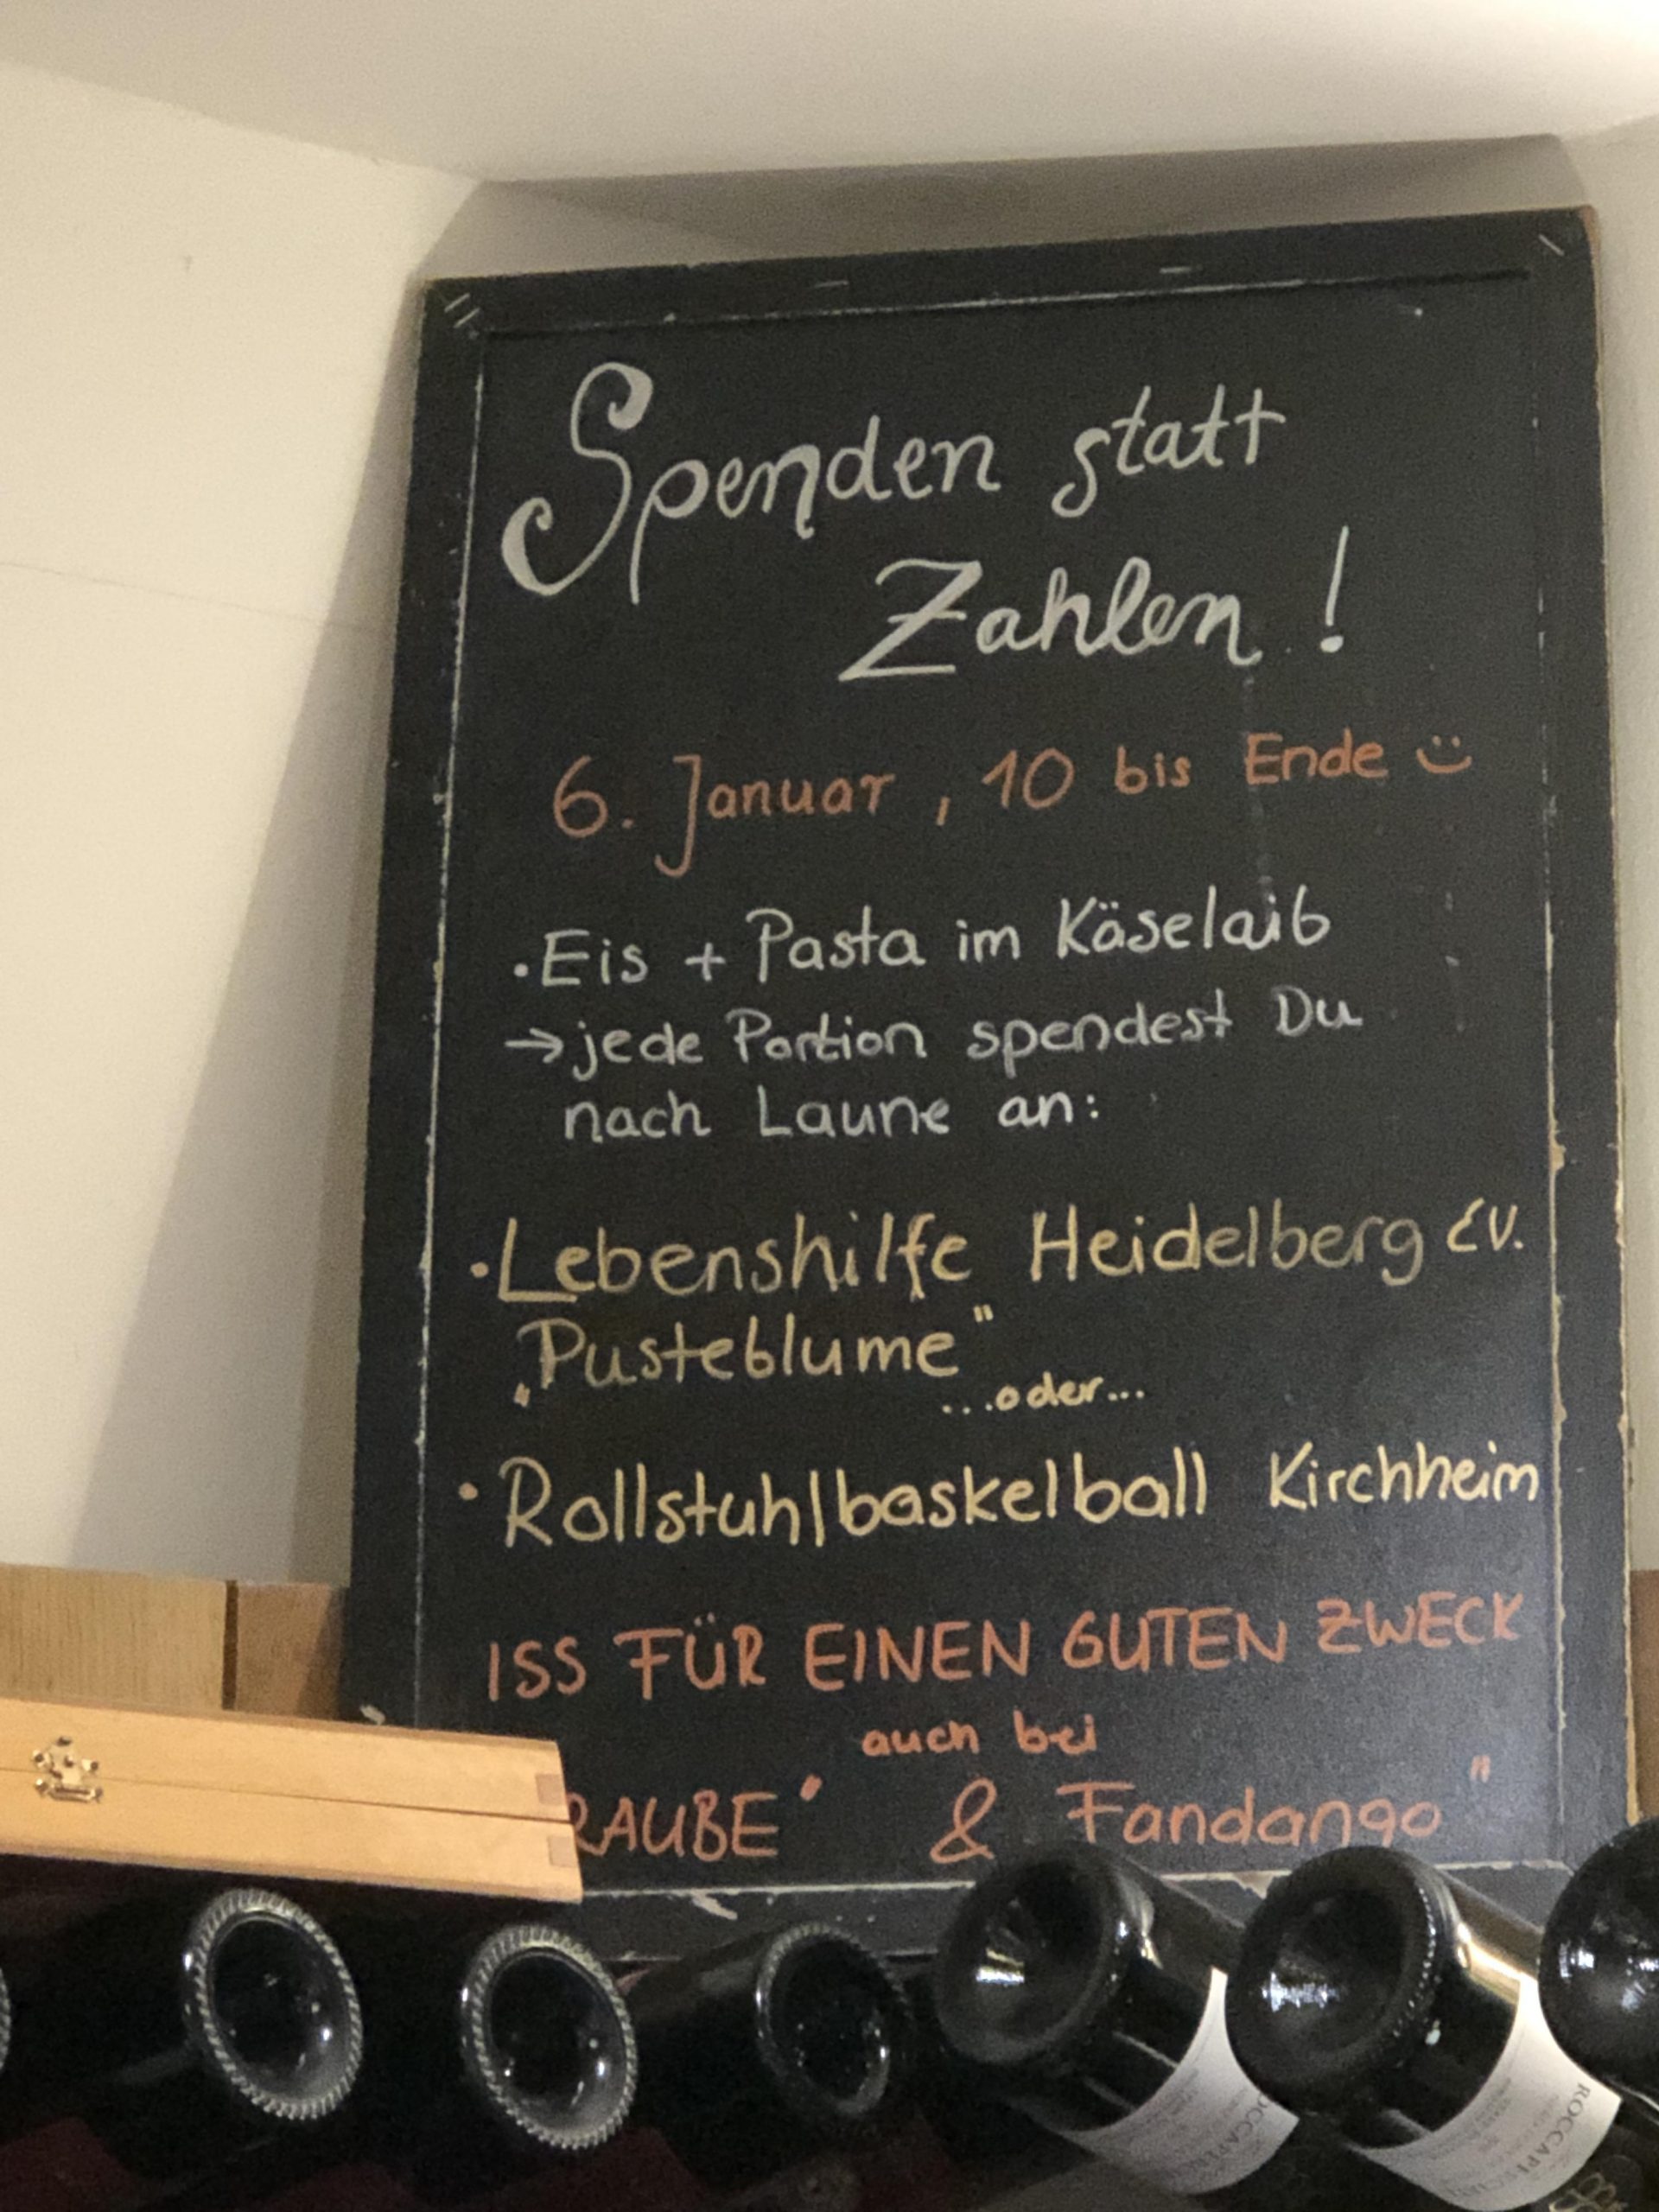 Spenden statt
Zahlen!
6. Januar, 10 bis Ende
• Eis + Pasta im Käselaib
→ jede Portion spendest Du
nach Laune an:
• Lebenshilfe Heidelberg e.V.
„Pusteblume"
...oder...
• Rollstuhlbasketball Kirchheim
ISS FÜR EINEN GUTEN ZWECK
auch bei
RAUBE" & Fandango"